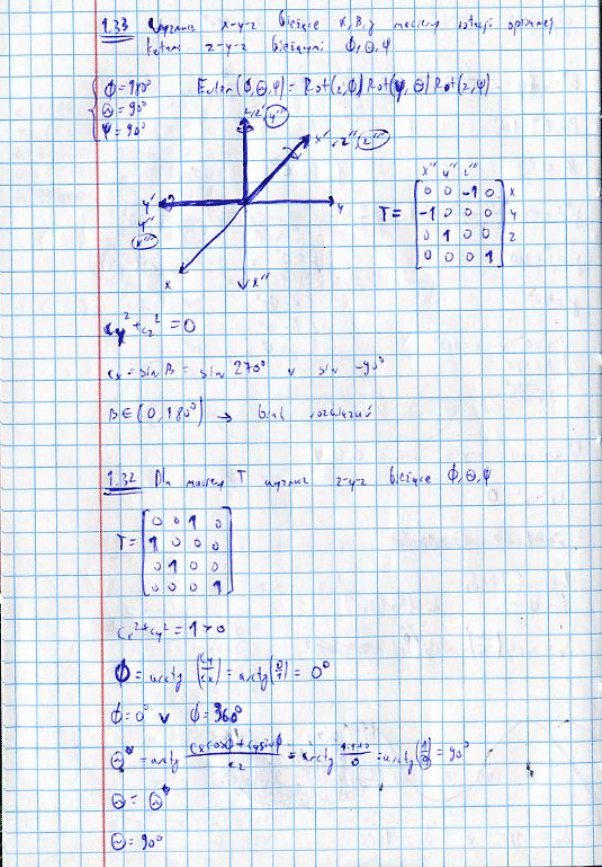 1.33 Wyznacz x-y-z bieżące α, β, γ macierzy rotacji opisanej
kątami z-y-z bieżącymi φ, Θ, Ψ
φ = 180°
Θ = 90°
Ψ = 90°
Euler(φ, Θ, Ψ) = Rot(z, φ) Rot(y, Θ) Rot(z, Ψ)
z, z' y'''
x', z'', z'''
y'
y''
x'''
y
x
x''
x''' y''' z'''
T = [ 0 0 -1 0 ] x
[ -1 0 0 0 ] y
[ 0 1 0 0 ] z
[ 0 0 0 1 ]
cy² + cz² = 0
cx = sin β = sin 270° v sin -90°
β ∈ (0, 180°) → brak rozwiązań
1.32 Dla macierzy T wyznacz z-y-z bieżące φ, Θ, Ψ
T = [ 0 0 1 0 ]
[ 1 0 0 0 ]
[ 0 1 0 0 ]
[ 0 0 0 1 ]
cx² + cy² = 1 > 0
φ = arctg (cy/cx) = arctg (0/1) = 0°
φ = 0° v φ = 360°
Θ* = arctg (cx cosφ + cy sinφ)/cz = arctg (1·1+0)/0 = arctg (1/0) = 90°
Θ = Θ*
Θ = 90°